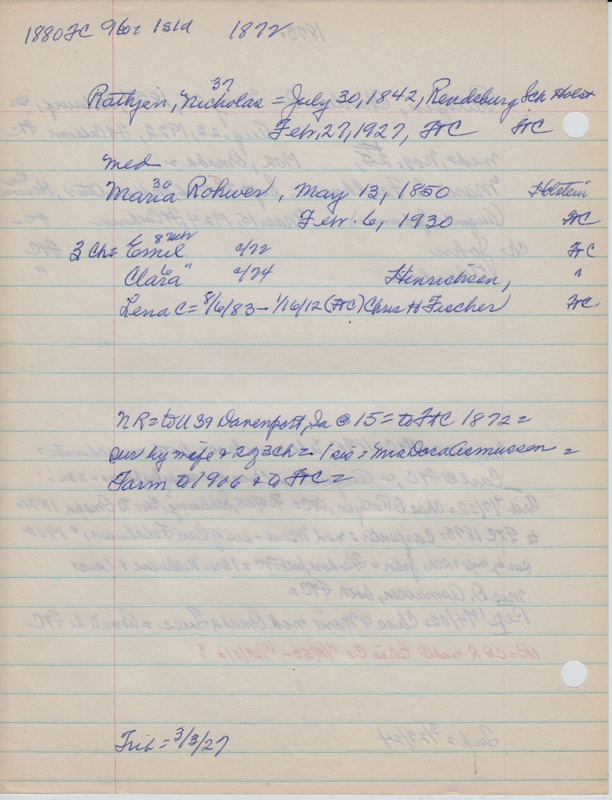 1880 FC 960: Isld 1872
37
Rathjen, Nicholas = July 30, 1842, Rendsburg Sch Holst
Feb, 27, 1927, FtC FtC
med
30
Maria Rohwer, May 13, 1850 Holstein
Feb. 6, 1930 FtC
3 Ch = Emil 8 Nebr a/72 FtC
Clara 6 " a/74 Henrichsen, "
Lena C = 8/6/83 - 1/16/12 (FtC) Chris H Fischer FtC
NR = to U 39 Davenport, Ia @ 15 = to FtC 1872 =
sur by wife & 2 of 3 ch = 1 sis = Mrs Dora Asmussen =
Farm to 1906 & to FtC =
Trib = 3/3/27